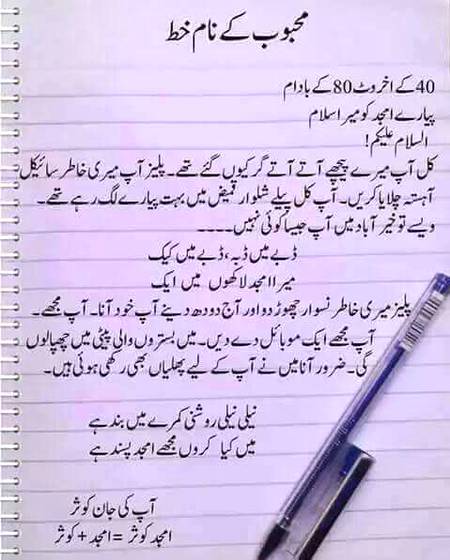 محبوب کے نام خط
40 کے اخروٹ 80 کے بادام
پیارے امجد کو میرا سلام
السلام علیکم!
کل آپ میرے پیچھے آتے آتے گر کیوں گئے تھے۔ پلیز آپ میری خاطر سائیکل
آہستہ چلایا کریں۔ آپ کل پیلے شلوار قمیض میں بہت پیارے لگ رہے تھے۔
ویسے تو خیر آباد میں آپ جیسا کوئی نہیں۔۔۔۔۔
ڈبے میں ڈبہ، ڈبے میں کیک
میرا امجد لاکھوں میں ایک
پلیز میری خاطر نسوار چھوڑ دو اور آج دودھ دینے آپ خود آنا۔ آپ مجھے۔
آپ مجھے ایک موبائل دے دیں۔ میں بستروں والی پیٹی میں چھپا لوں
گی۔ ضرور آنا میں نے آپ کے لیے پھلیاں بھی رکھی ہوئی ہیں۔
نیلی نیلی روشنی کمرے میں بند ہے
میں کیا کروں مجھے امجد پسند ہے
آپ کی جان کوثر
امجد کوثر = امجد + کوثر